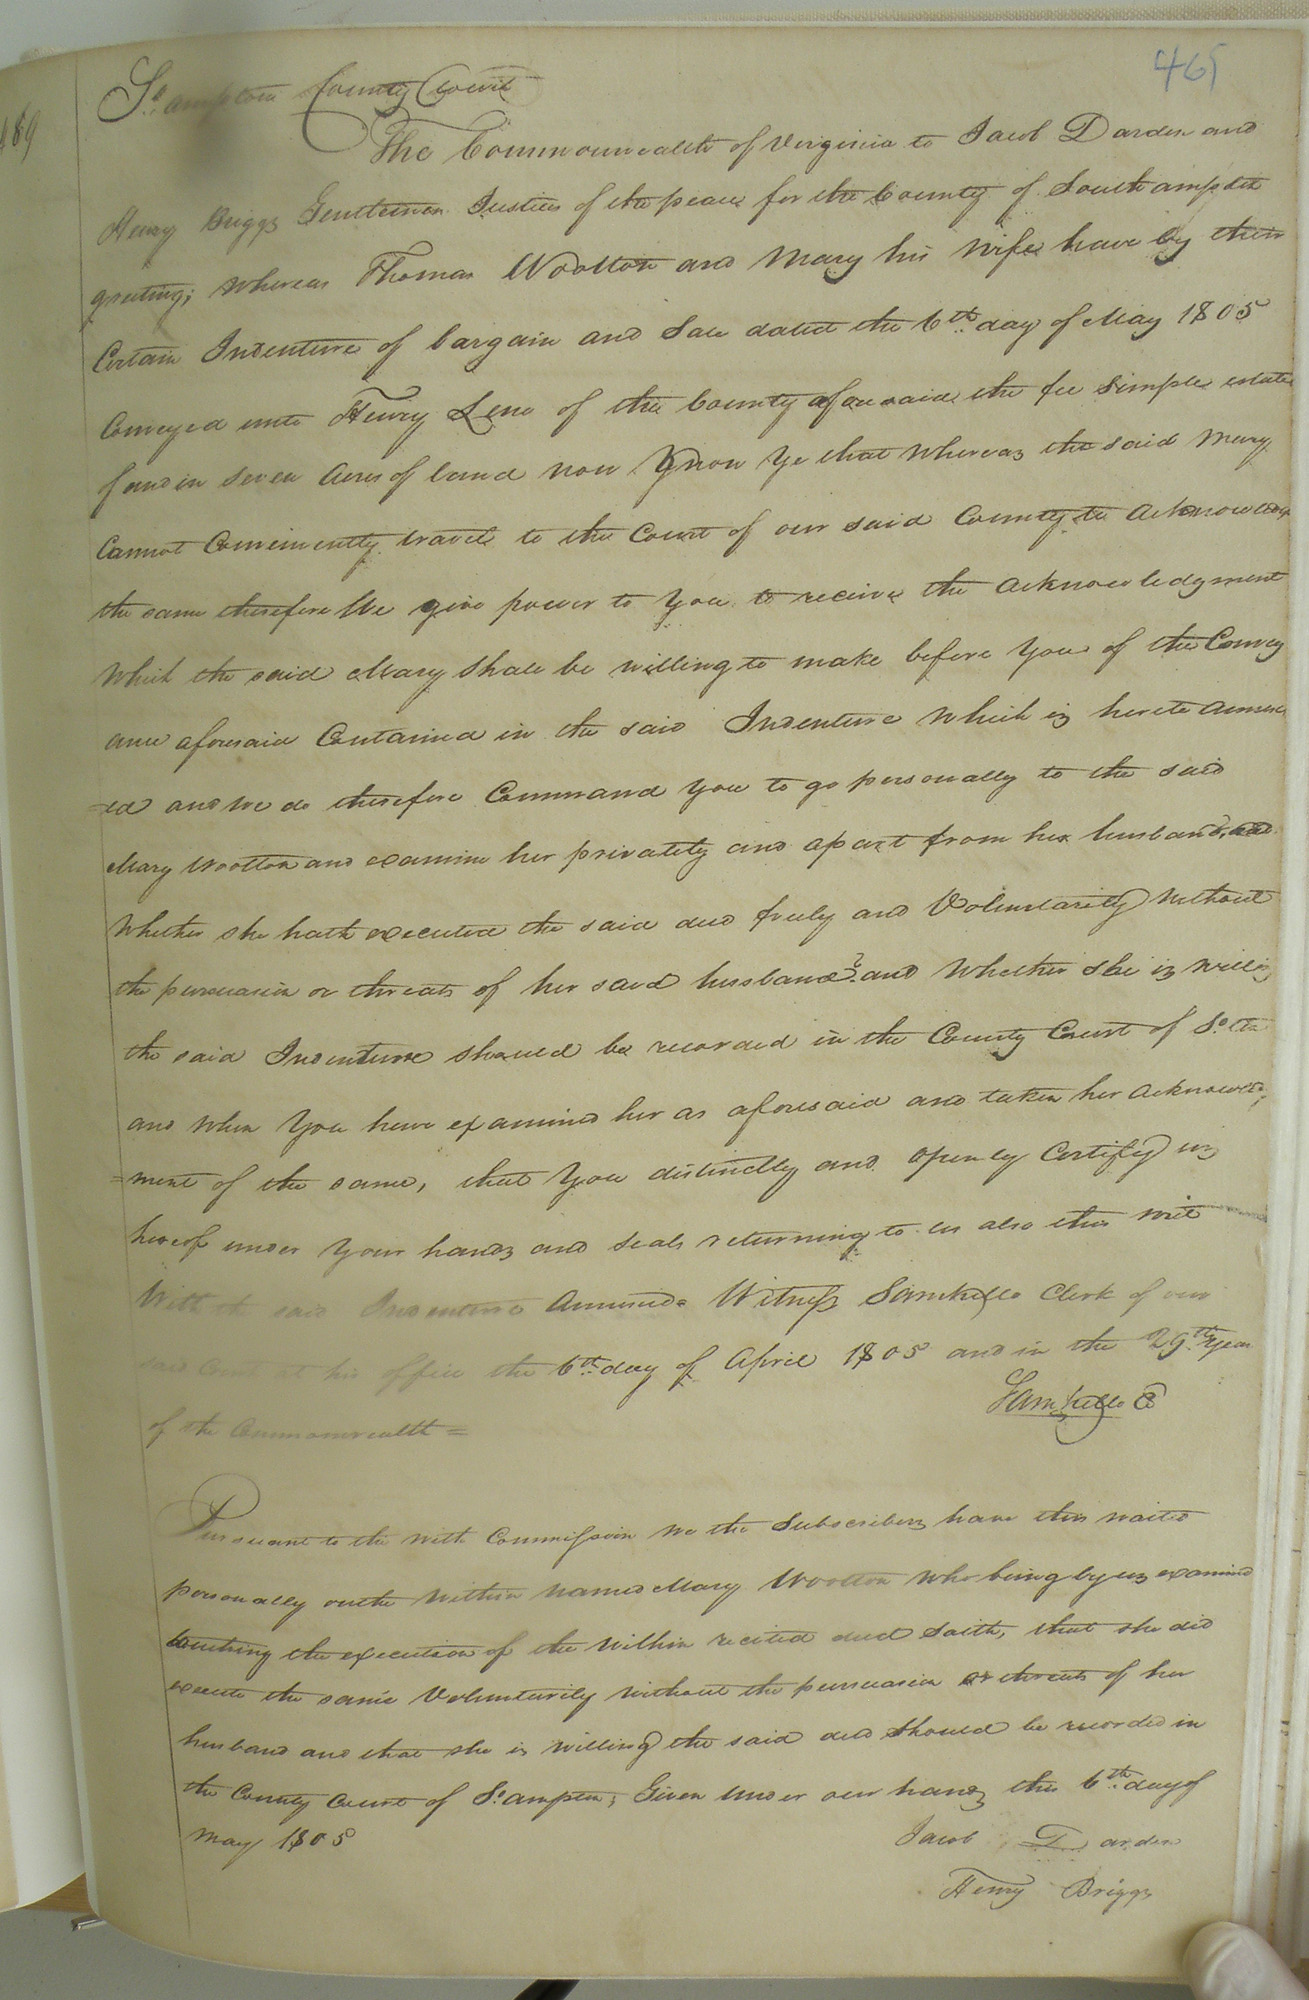 465
489
So. ampton County Court
The Commonwealth of Virginia to Jacob Darden and
Henry Briggs Gentlemen Justices of the peace for the County of Southampton
greeting; Whereas Thomas Wootton and Mary his Wife have by their
Certain Indenture of bargain and Sale dated the 6th day of May 1805
Conveyed unto Henry Lene of the County aforesaid the fee Simple estate
of and in Seven Acres of land now Know Ye that Whereas the said Mary
Cannot Conveniently travel to the Court of our said County to Acknowledge
the same therefore We give power to You to receive the acknowledgment
Which the said Mary Shall be willing to make before You of the Convey
ance aforesaid Contained in the said Indenture Which is hereto annex
=ed and We do therefore Command You to go personally to the said
Mary Wootton and examine her privately and apart from her husband, and
Whether she hath executed the said deed freely and Voluntarily Without
the persuasion or threats of her said husband? and Whether she is willing
the said Indenture should be recorded in the County Court of So. ton
and When You have examined her as aforesaid and taken her Acknowledg
=ment of the same, that You distinctly and openly Certify us
hereof under Your hands and seals returning to us also this writ
With the said Indenture Annexed= Witness Saml Kello Clerk of our
said Court at his office the 6th day of April 1805 and in the 29th Year
of the Commonwealth =
Saml Kello C
Pursuant to the with Commission We the Subscribers have this waited
personally on the Within named Mary Wootton Who being by us examined
touching the execution of the Within recited deed Saith, that she did
execute the same Voluntarily Without the persuasion or threats of her
husband and that she is Willing the said deed Should be recorded in
the County Court of So. ampton, Given Under our hands this 6th day of
May 1805
Jacob Darden
Henry Briggs